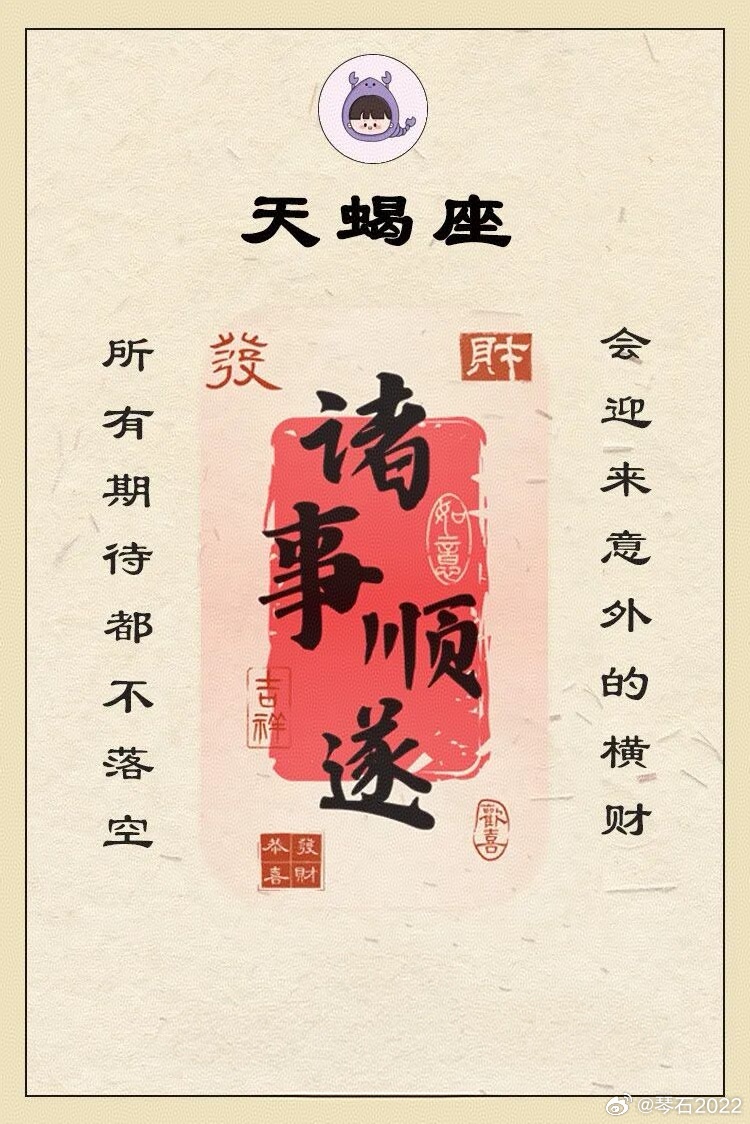 天蝎座
会迎来意外的横财
所有期待都不落空
發
财
诸事顺遂
如意
吉祥
歡喜
恭喜發財
@琴石2022